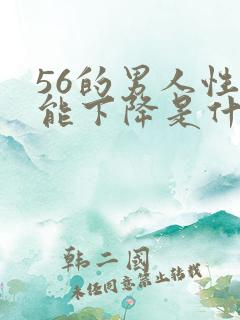 56的男人性
能下降是什
韩二國
未经同意禁止转载